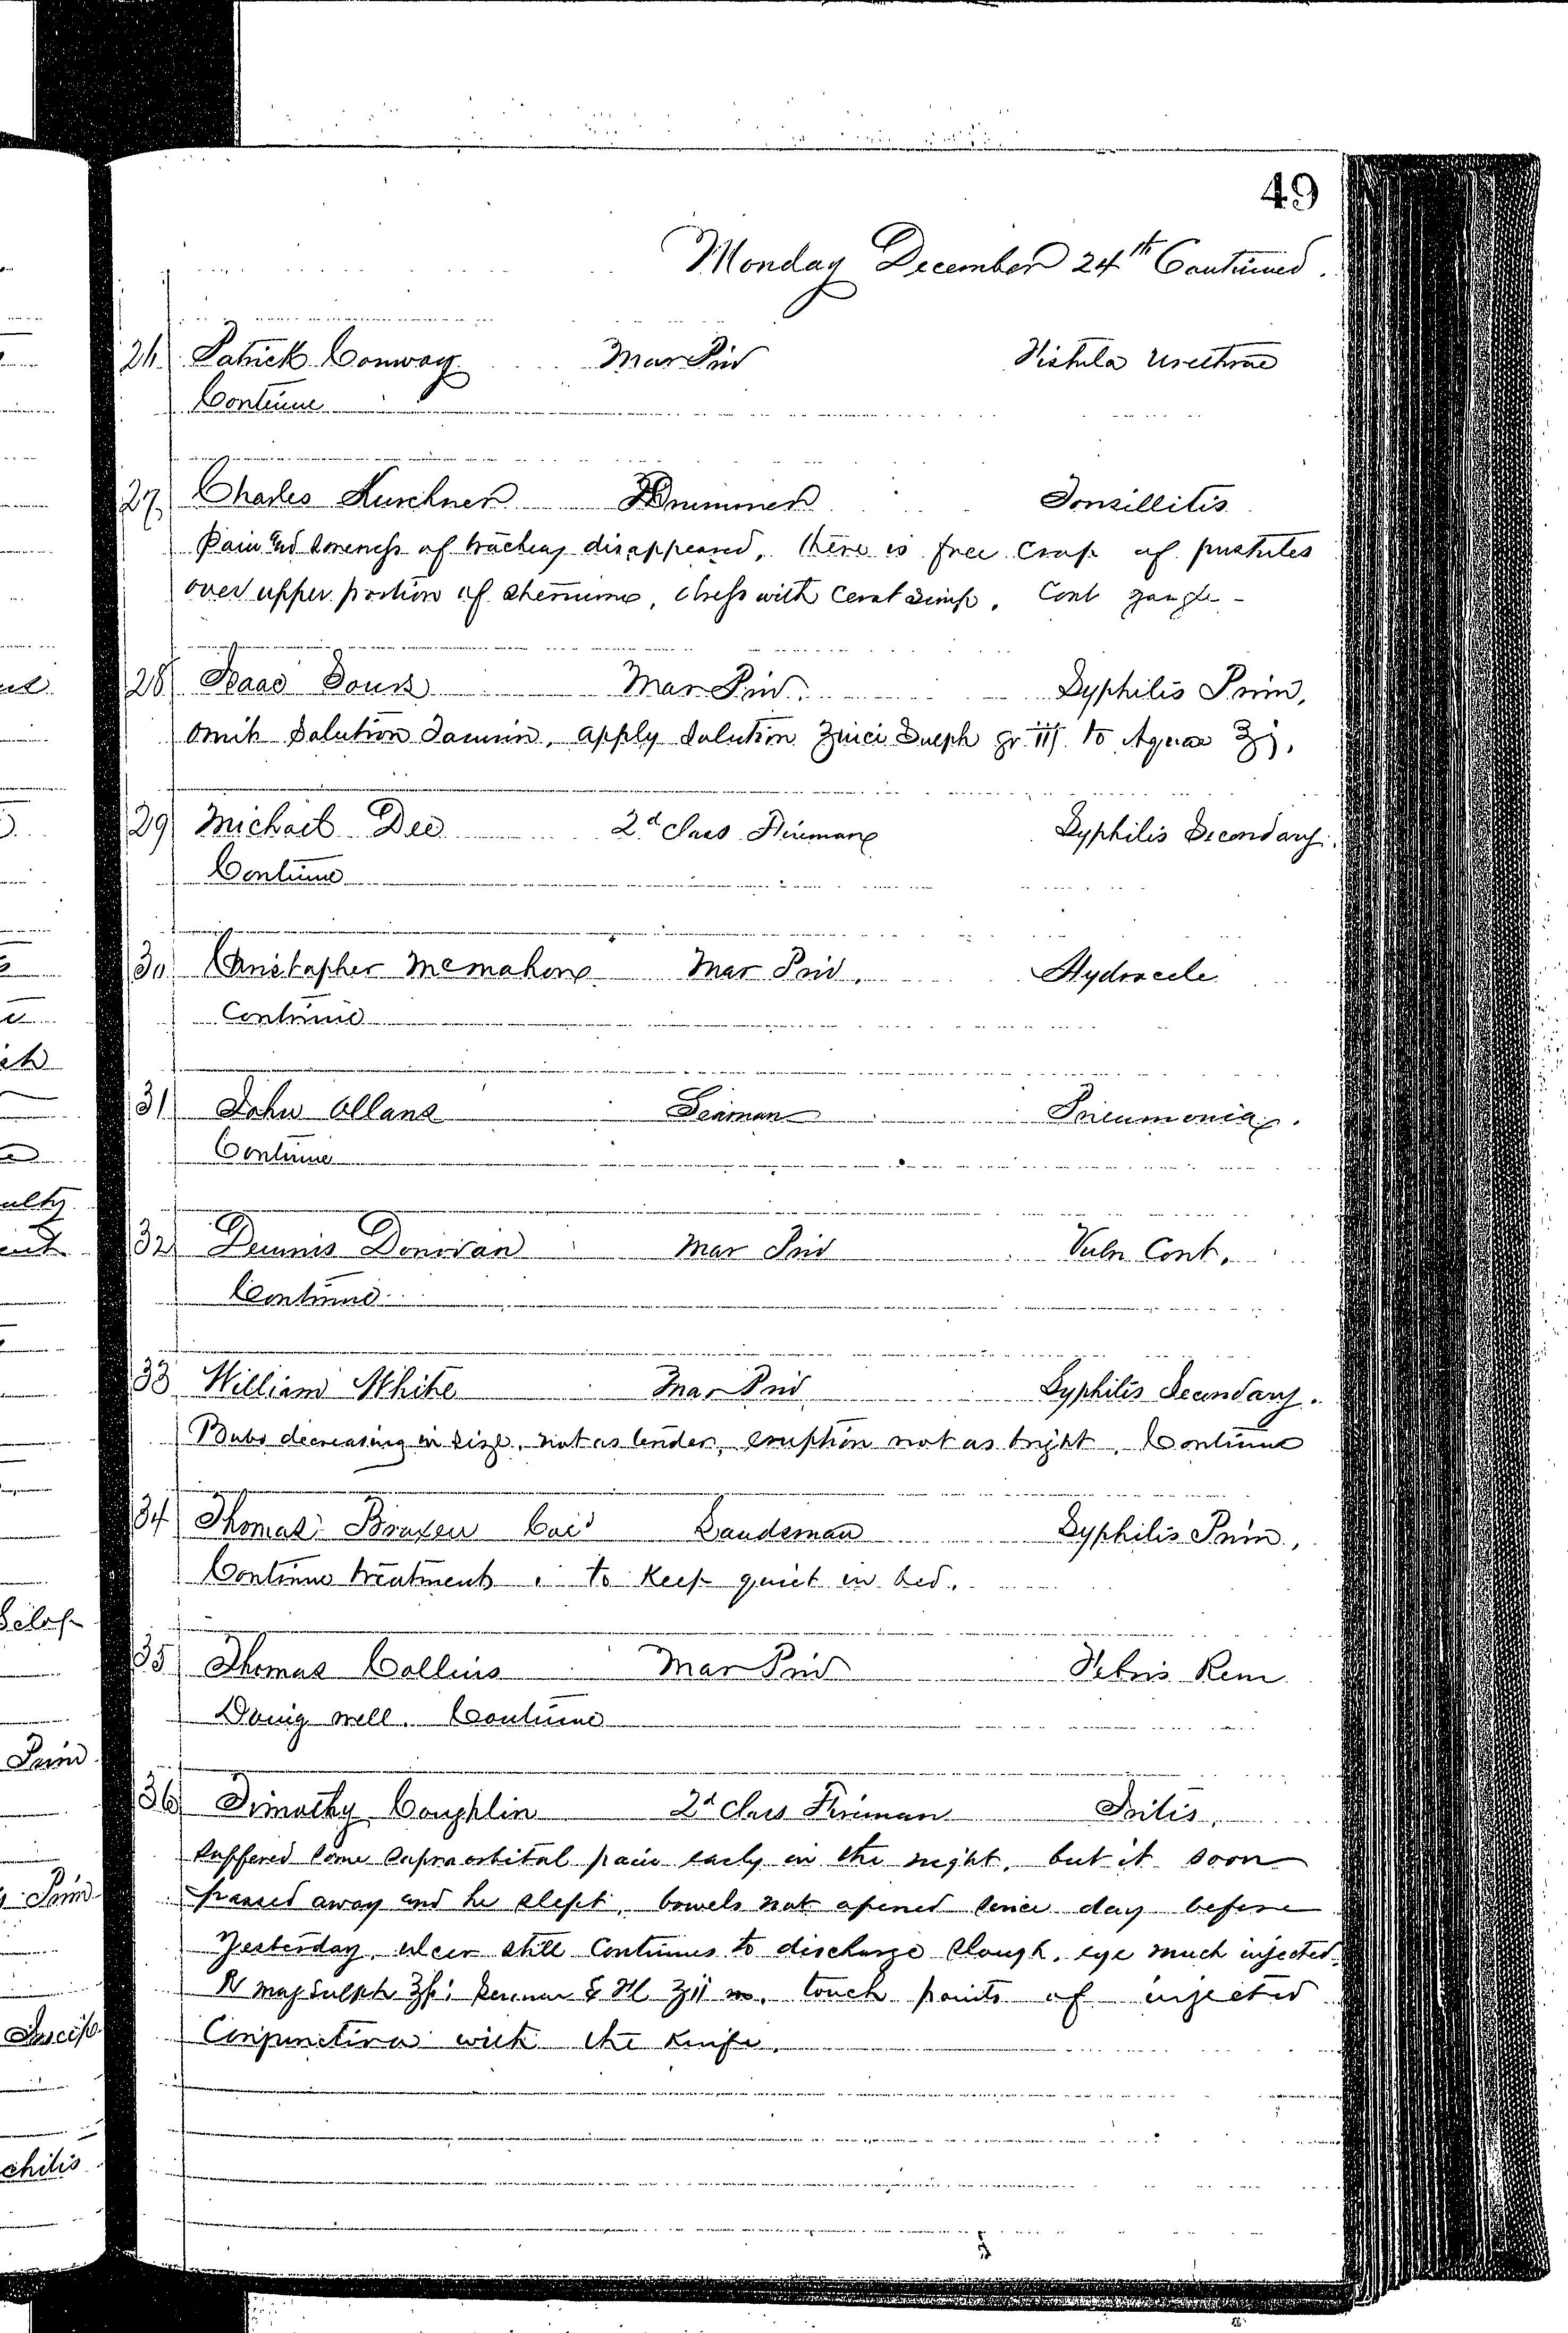 49
Monday December 24th Continued.
26 Patrick Conway Mar Priv Fistula Urethrae
Continue
27 Charles Kurchner Drummer Tonsillitis
Pain and soreness of trachea disappeared, there is free crop of pustules
over upper portion of sternum, dress with Cerat Simp. Cont gargle -
28 Isaac Mar Priv. Syphilis Prim.
Omit Solution Tannin, apply Solution Zinci Sulph gr iij to Aquae ℥j.
29 Michael Dee 2d Class Fireman Syphilis Secondary.
Continue
30 Christopher McMahon Mar Priv. Hydrocele
Continue
31 John Allans Seaman Pneumonia.
Continue
32 Dennis Donovan Mar Priv Vuln Cont.
Continue
33 William White Mar Priv Syphilis Secondary.
Bubo decreasing in size, not as tender, eruption not as bright. Continue
34 Thomas Col'd Landsman Syphilis Prim.
Continue treatment. to Keep quiet in bed.
35 Thomas Collins Mar Priv Febris Rem
Doing well. Continue
36 Timothy Coughlin 2d Class Fireman Iritis.
Suffered some supraorbital pain early in the night, but it soon
passed away and he slept. bowels not opened since day before
Yesterday, ulcer still Continues to discharge slough. eye much injected.
℞ Mag Sulph touch points of injected
Conjunctiva with the knife.